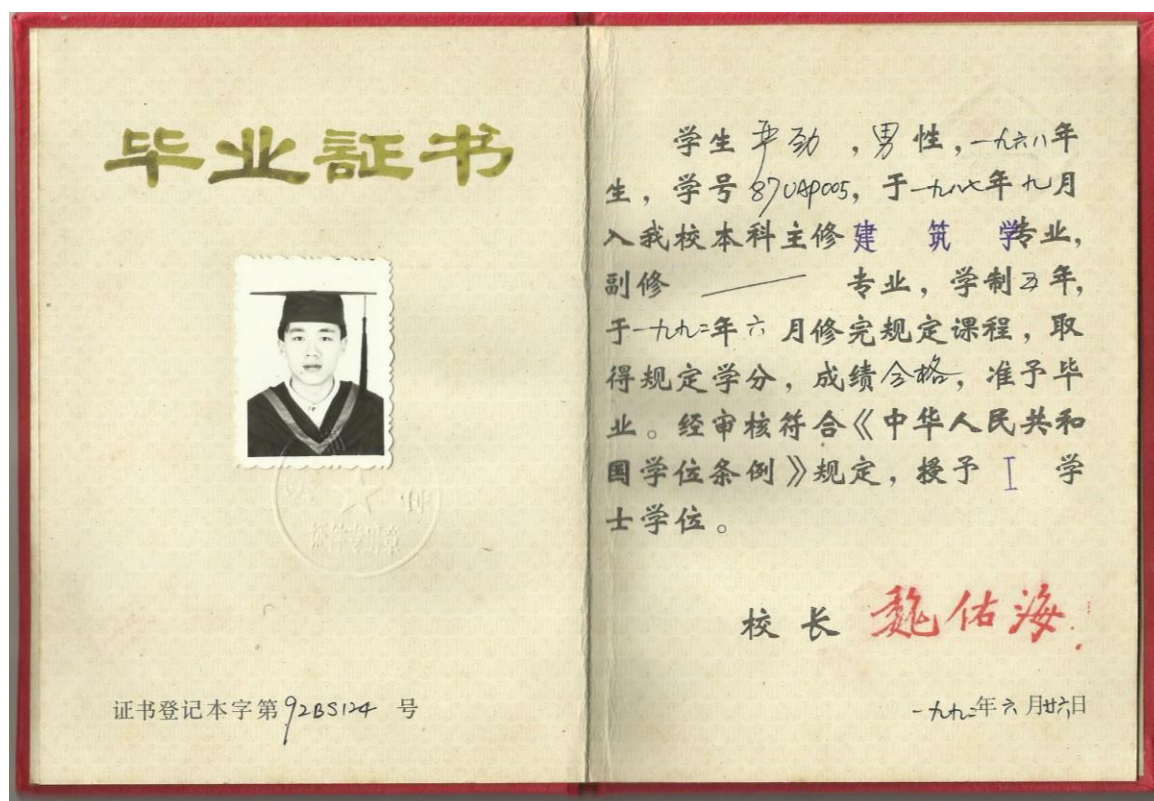 毕业証书
证件专用章
证书登记本字第92BS124号
学生 劲，男性，一九六八年
生，学号87UAP005，于一九八七年九月
入我校本科主修建筑学专业，
副修——专业，学制五年，
于一九九二年六月修完规定课程，取
得规定学分，成绩合格，准予毕
业。经审核符合《中华人民共和
国学位条例》规定，授予工学
士学位。
校长 魏佑海
一九九二年六月廿六日